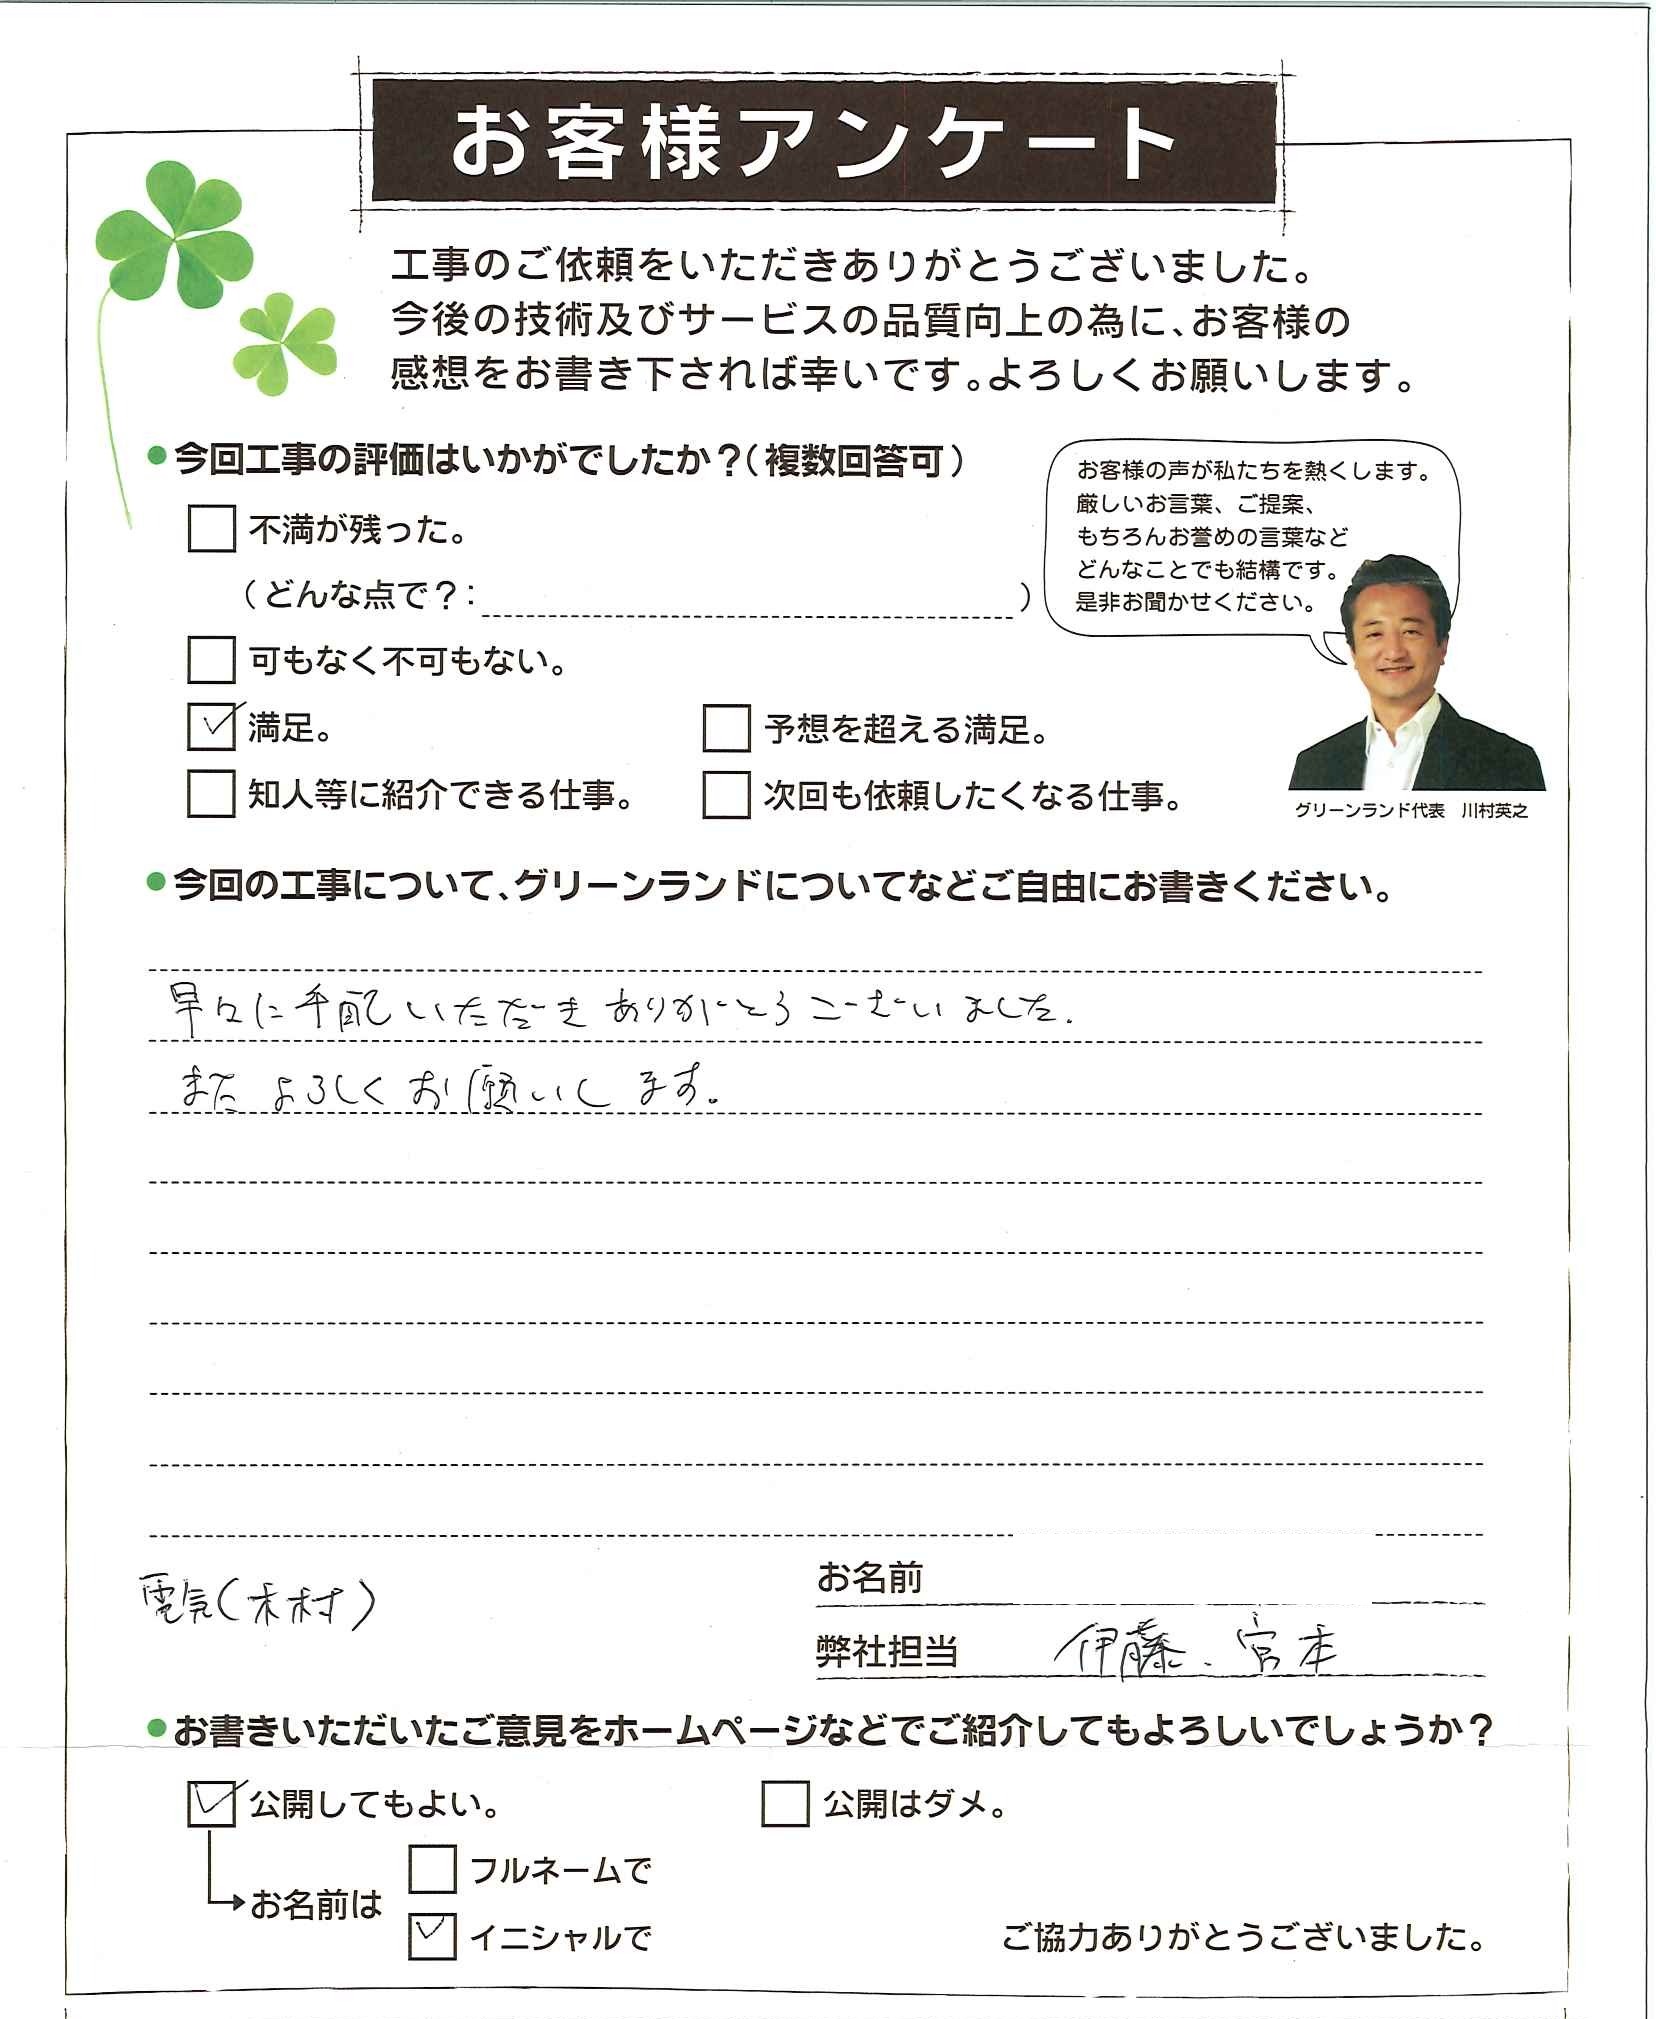 お客様アンケート
工事のご依頼をいただきありがとうございました。
今後の技術及びサービスの品質向上の為に、お客様の
感想をお書き下されば幸いです。よろしくお願いします。
●今回工事の評価はいかがでしたか？（複数回答可）
不満が残った。
（どんな点で？：　　　）
可もなく不可もない。
満足。
予想を超える満足。
知人等に紹介できる仕事。
次回も依頼したくなる仕事。
お客様の声が私たちを熱くします。
厳しいお言葉、ご提案、
もちろんお誉めの言葉など
どんなことでも結構です。
是非お聞かせください。
グリーンランド代表　川村英之
●今回の工事について、グリーンランドについてなどご自由にお書きください。
早々に手配いただきありがとうございました.
またよろしくお願いします。
電気(木村)
お名前
弊社担当　伊藤、宮本
●お書きいただいたご意見をホームページなどでご紹介してもよろしいでしょうか？
公開してもよい。
公開はダメ。
お名前は
フルネームで
イニシャルで
ご協力ありがとうございました。